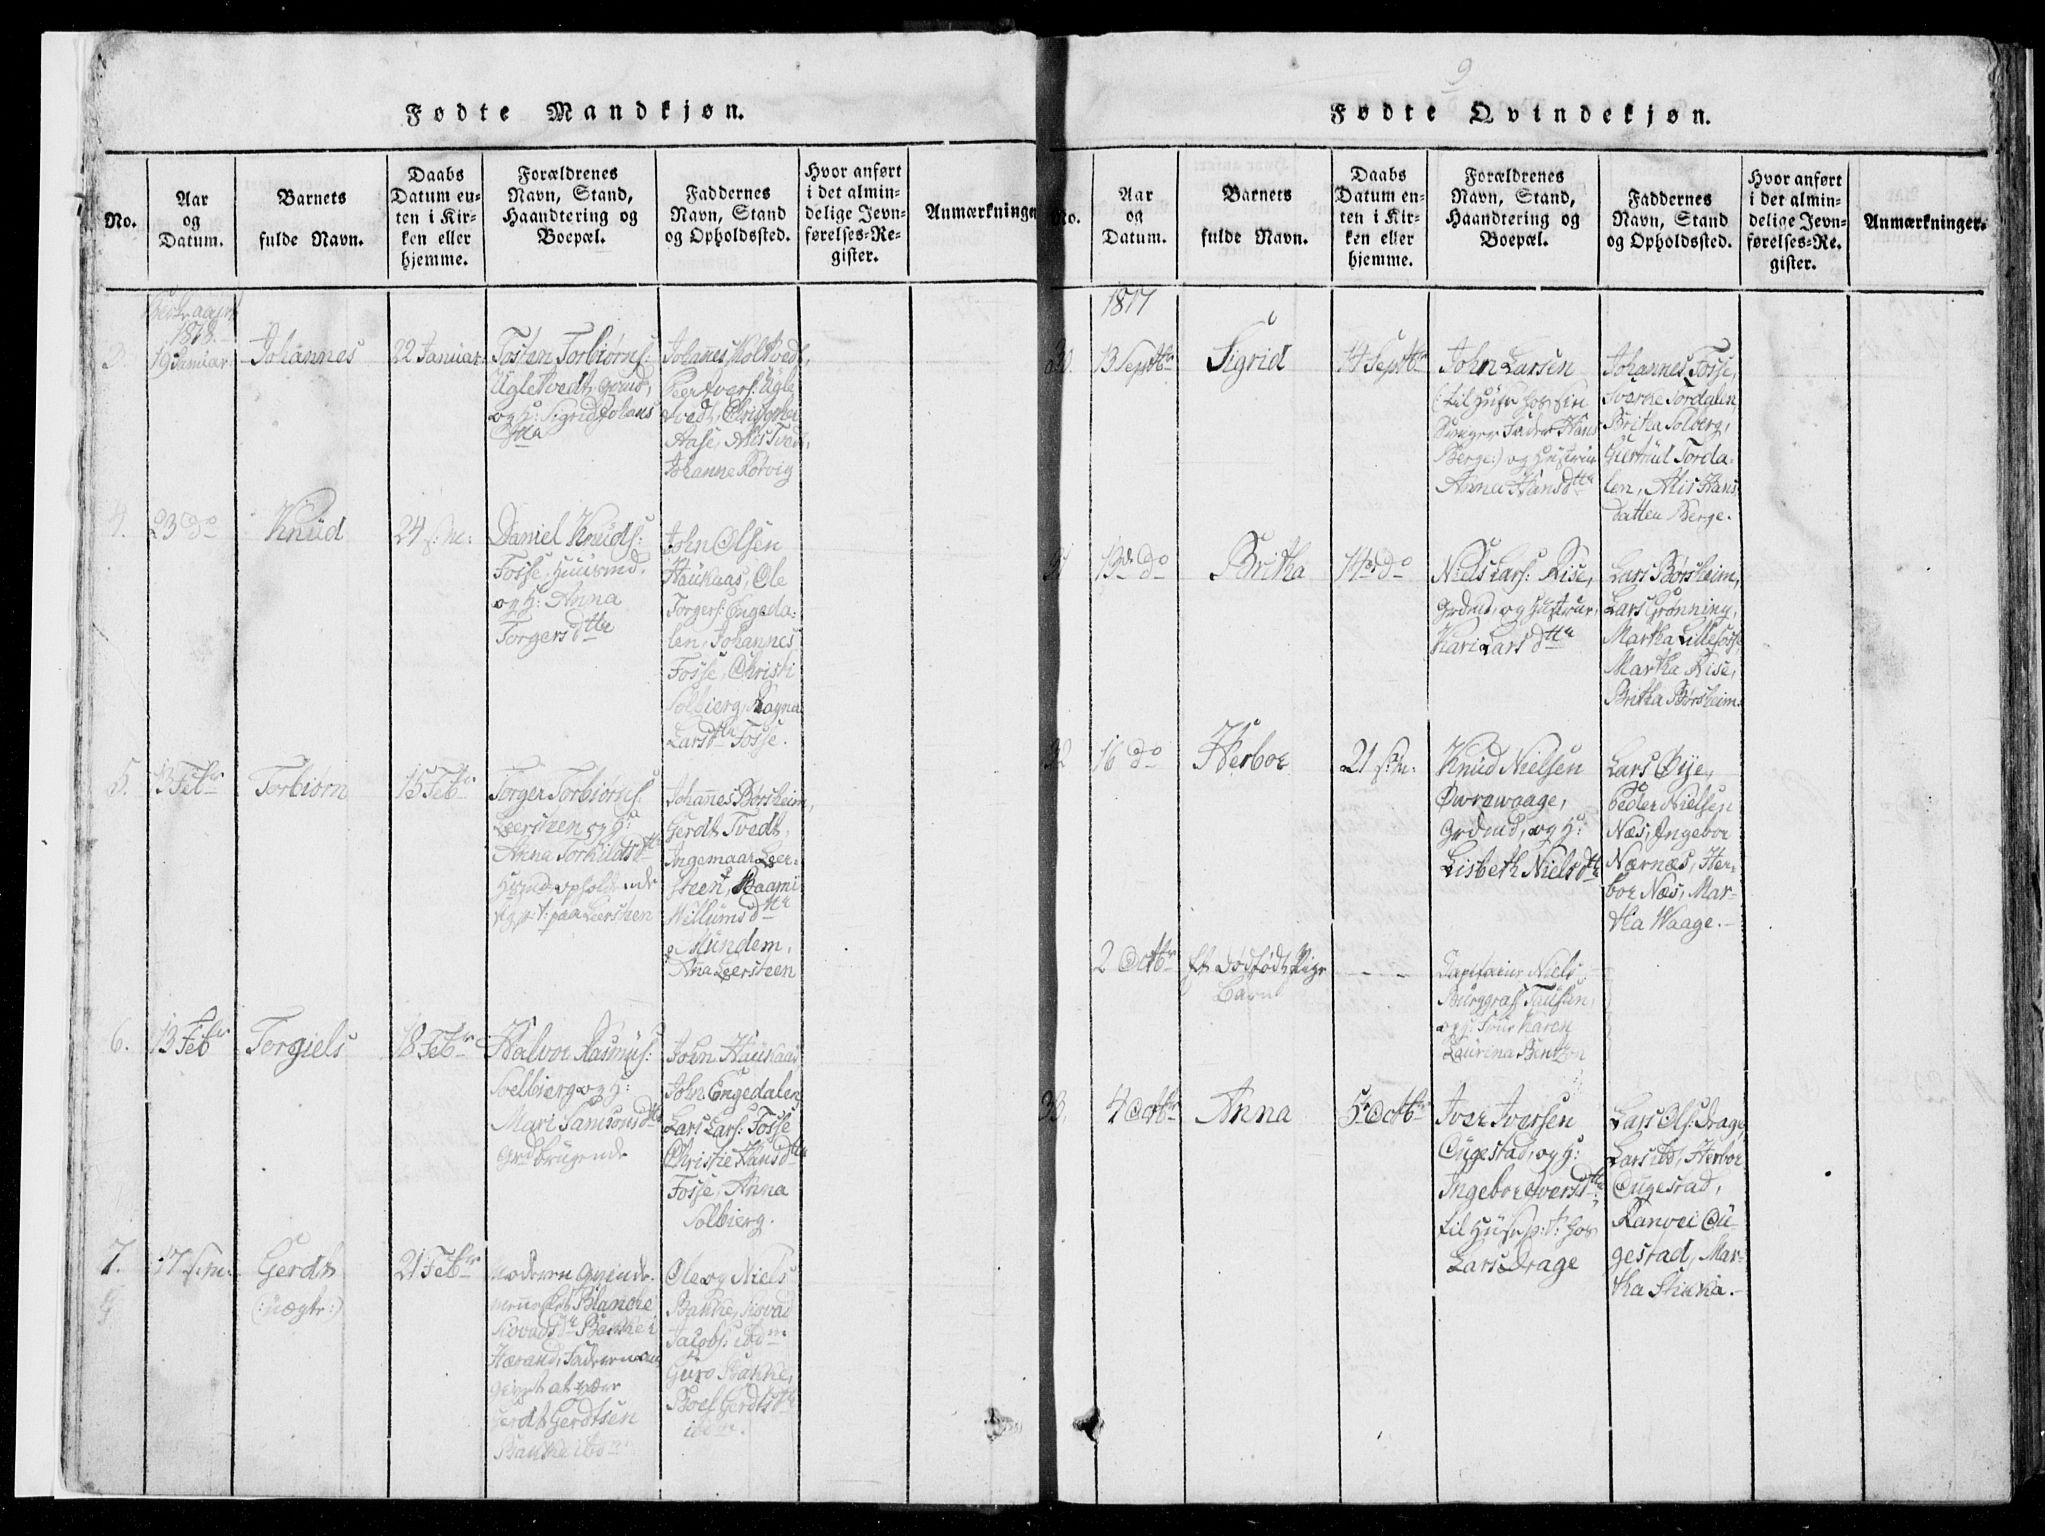 Fødte Mandkjøn.
No.
Aar
og
Datum.
Barnets
fulde Navn.
Daabs
Datum en-
ten i Kir-
ken eller
hjemme.
Forældrenes
Navn, Stand,
Haandtering og
Boepæl.
Faddernes
Navn, Stand
og Opholdssted.
Hvor anført
i det almin-
delige Jevn-
førelses-Re-
gister.
Anmærkninge
1818.
3.
19 Januar
Johannes
22 Januar
Tosten Torbiørns:
Ugletvedt, Grmd,
og H: Sigrid Johans
Dtta
Johanes Holtvedt,
Peer Ivers: Ugle
tvedt, Christopher
Aase, Alis Tvedt,
Johanne Rotvig
4.
23 do
Knud
24 s: m:
Daniel Knuds:
Fosse, Huusmd,
og H: Anna
Torgersdtta
John Olsen
Haukaas, Ole
Torgers: Engeda-
len, Johannes
Fosse, Christi
Solbierg, Ragna
Larsdtta Fosse.
5.
13 Febr
Torbiørn
15 Febr
Torger Torbiørns:
Leersteen og H:
Anna Torkildsdtta
paa Leersteen
Johanes Børsheim,
Gerdt Tvedt,
Ingemaar Leer-
steen, Baami
Willumsdtta
Mundem,
Anna Leersteen
6.
13 Febr
Torgiels
18 Febr
Halvor Rasmus:
Soelbierg og H:
Mari Samsonsdtta
Grdbrugende
John Haukaas
John Engedalen,
Lars Lars: Fosse
Christie Hansdtta
Fosse, Anna
Solbierg.
7.
17 s: m.
Gerdt
(:uægte:)
21 Febr
Moderen
Blanche
Sjovadsdtr Bakke i
Hærand, Faderen an
givet at være
Gerdt Gerdtsen
Bakke ibdm
Ole og Niels
Bakke, Siovad
Jacobs: ibdm
Guro Bakke,
Boel Gerdtsdtta
ibdm.
9
Fødte Qvindekjøn.
No.
Aar
og
Datum.
Barnets
fulde Navn.
Daabs
Datum en-
ten i Kir-
ken eller
hjemme.
Forældrenes
Navn, Stand,
Haandtering og
Boepæl.
Faddernes
Navn, Stand
og Opholdssted.
Hvor anført
i det almin-
delige Jevn-
førelses-Re-
gister.
Anmærkninger.
1817
30.
13 Septbr
Sigrid
14 Septbr
John Larsen
(til Huse hos sin
Sviger Fader Hans
Berge:) og Hustrue
Anna Hansdtta
Johannes Fosse,
Sverne Tordalen,
Britha Solberg,
Gurtrud Torda-
len, Alis Hans
datten Berge.
31
13de do
Britha
14de do
Niels Lars: Rise,
Grdmd, og Hustrue,
Kari Larsdtta
Lars Børsheim,
Lars Grønning,
Martha Lillefosse
Martha Rise,
Britha Børsheim.
32
16 do
Herboe
21 s: m:
Knud Nielsen
Øvrewaage,
Grdmd, og H:
Lisbeth Nielsdtta
Lars Øye,
Peder Nielsen
Næs, Ingebor
Nærnæs, Her-
boe Næs, Mar-
tha Waage.
2 Octbr
Et dødfødt Pige
Barn
Capitaine Niels
Burggraf Tausan,
og s: Frue Karen
Laurina Bentzon
33.
4 Octbr
Anna
5 Octbr
Iver Iversen
Augestad, og H:
Ingebor Iversdtta
til Huse p: t: hos
Lars Drage
Lars Ols: Drage,
Lars ibd, Herboe
Augestad,
Ranvei Au-
gestad, Mar-
tha Skuka.